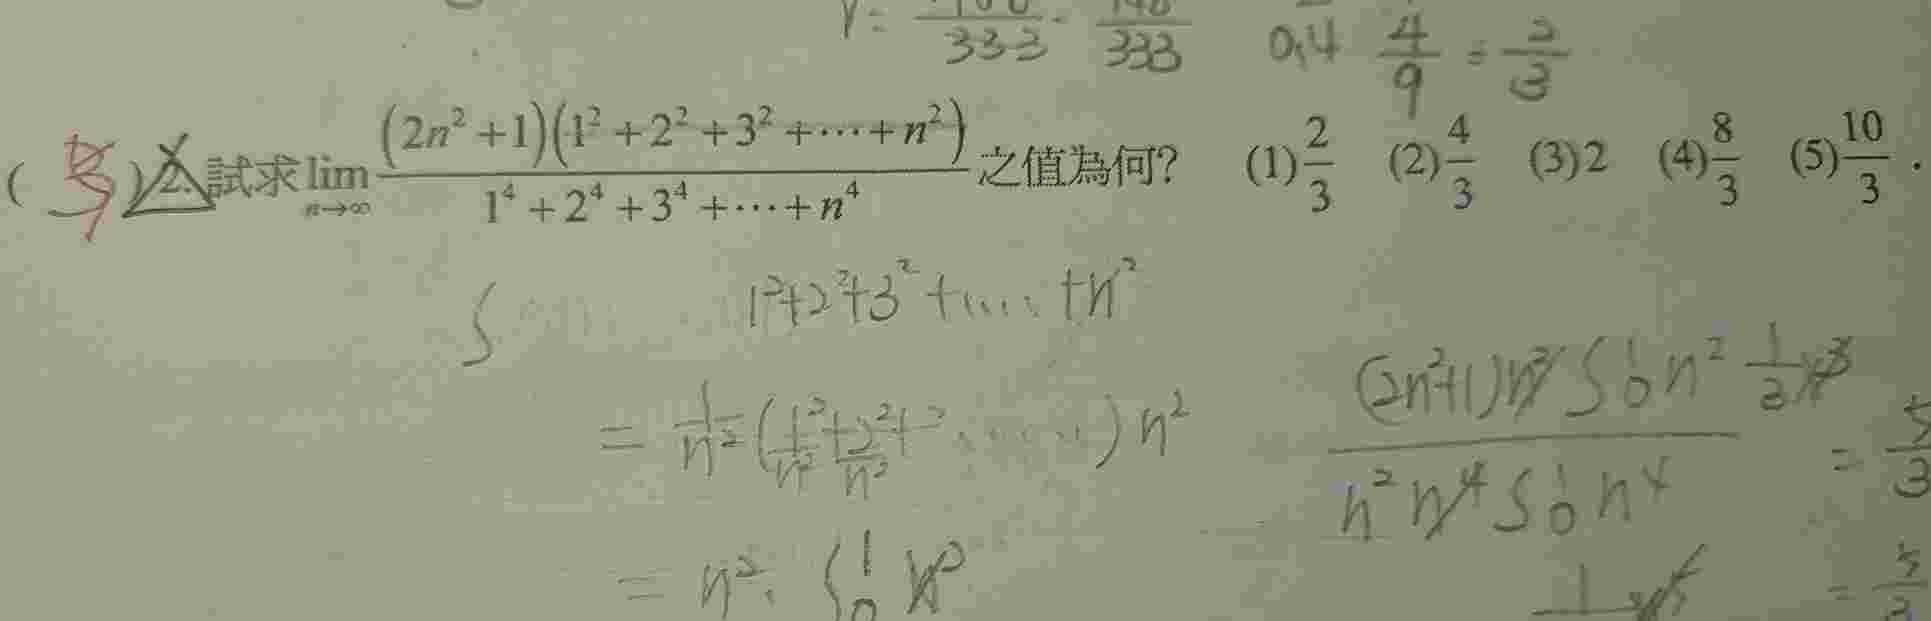 333 333 0.4 4/9 = 2/3
( 5 ) 2. 試求 lim n→∞ (2n² +1)(1² + 2² + 3² + ⋯ + n²) / 1⁴ + 2⁴ + 3⁴ + ⋯ + n⁴ 之值為何? (1) 2/3 (2) 4/3 (3) 2 (4) 8/3 (5) 10/3 .
∫ 1²+2²+3²+....+n²
= 1/n² (1²/n² + 2²/n² + ² ......) n²
(2n²+1)n² ∫₀¹ n² 1/3 / n² n⁴ ∫₀¹ n⁴ = 5/3
= n² . ∫₀¹